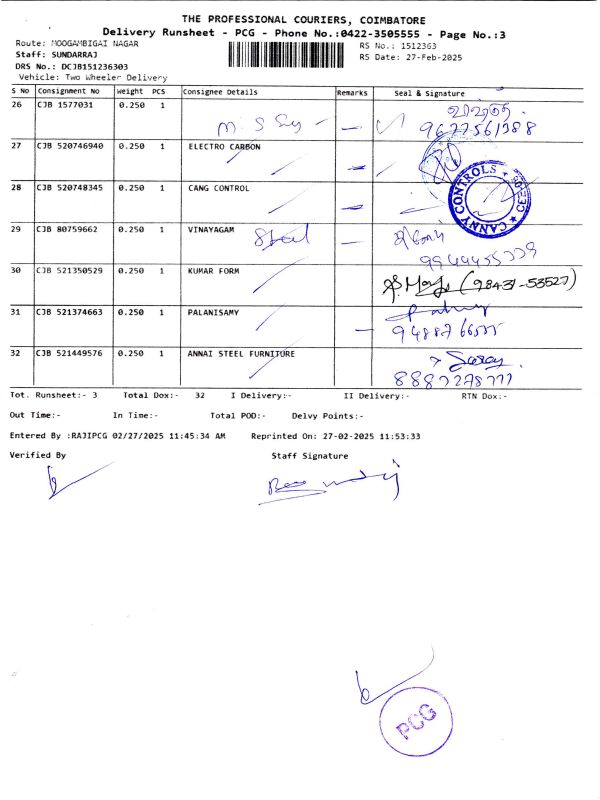 THE PROFESSIONAL COURIERS, COIMBATORE
Delivery Runsheet - PCG - Phone No.:0422-3505555 - Page No.:3
Route: MOOGAMBIGAI NAGAR
RS No.: 1512363
Staff: SUNDARRAJ
RS Date: 27-Feb-2025
DRS No.: DCJB151236303
Vehicle: Two Wheeler Delivery
S No Consignment No Weight PCS Consignee Details Remarks Seal & Signature
26 CJB 1577031 0.250 1
9677561388
27 CJB 520746940 0.250 1 ELECTRO CARBON
28 CJB 520748345 0.250 1 CANG CONTROL
CANNY CONTROLS
29 CJB 80759662 0.250 1 VINAYAGAM Steel
30 CJB 521350529 0.250 1 KUMAR FORM (98431-53527)
31 CJB 521374663 0.250 1 PALANISAMY
32 CJB 521449576 0.250 1 ANNAI STEEL FURNITURE
Tot. Runsheet:- 3 Total Dox:- 32 I Delivery:- II Delivery:- RTN Dox:-
Out Time:- In Time:- Total POD:- Delvy Points:-
Entered By :RAJIPCG 02/27/2025 11:45:34 AM Reprinted On: 27-02-2025 11:53:33
Verified By Staff Signature
PCG